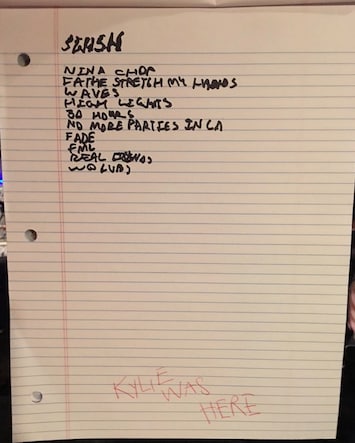 SWISH
NINA CHOP
FATHE STRETCH MY HANDS
WAVES
HIGH LIGHTS
30 HOURS
NO MORE PARTIES IN LA
FADE
FML
REAL FRIENDS
WOLVES
KYLIE WAS HERE